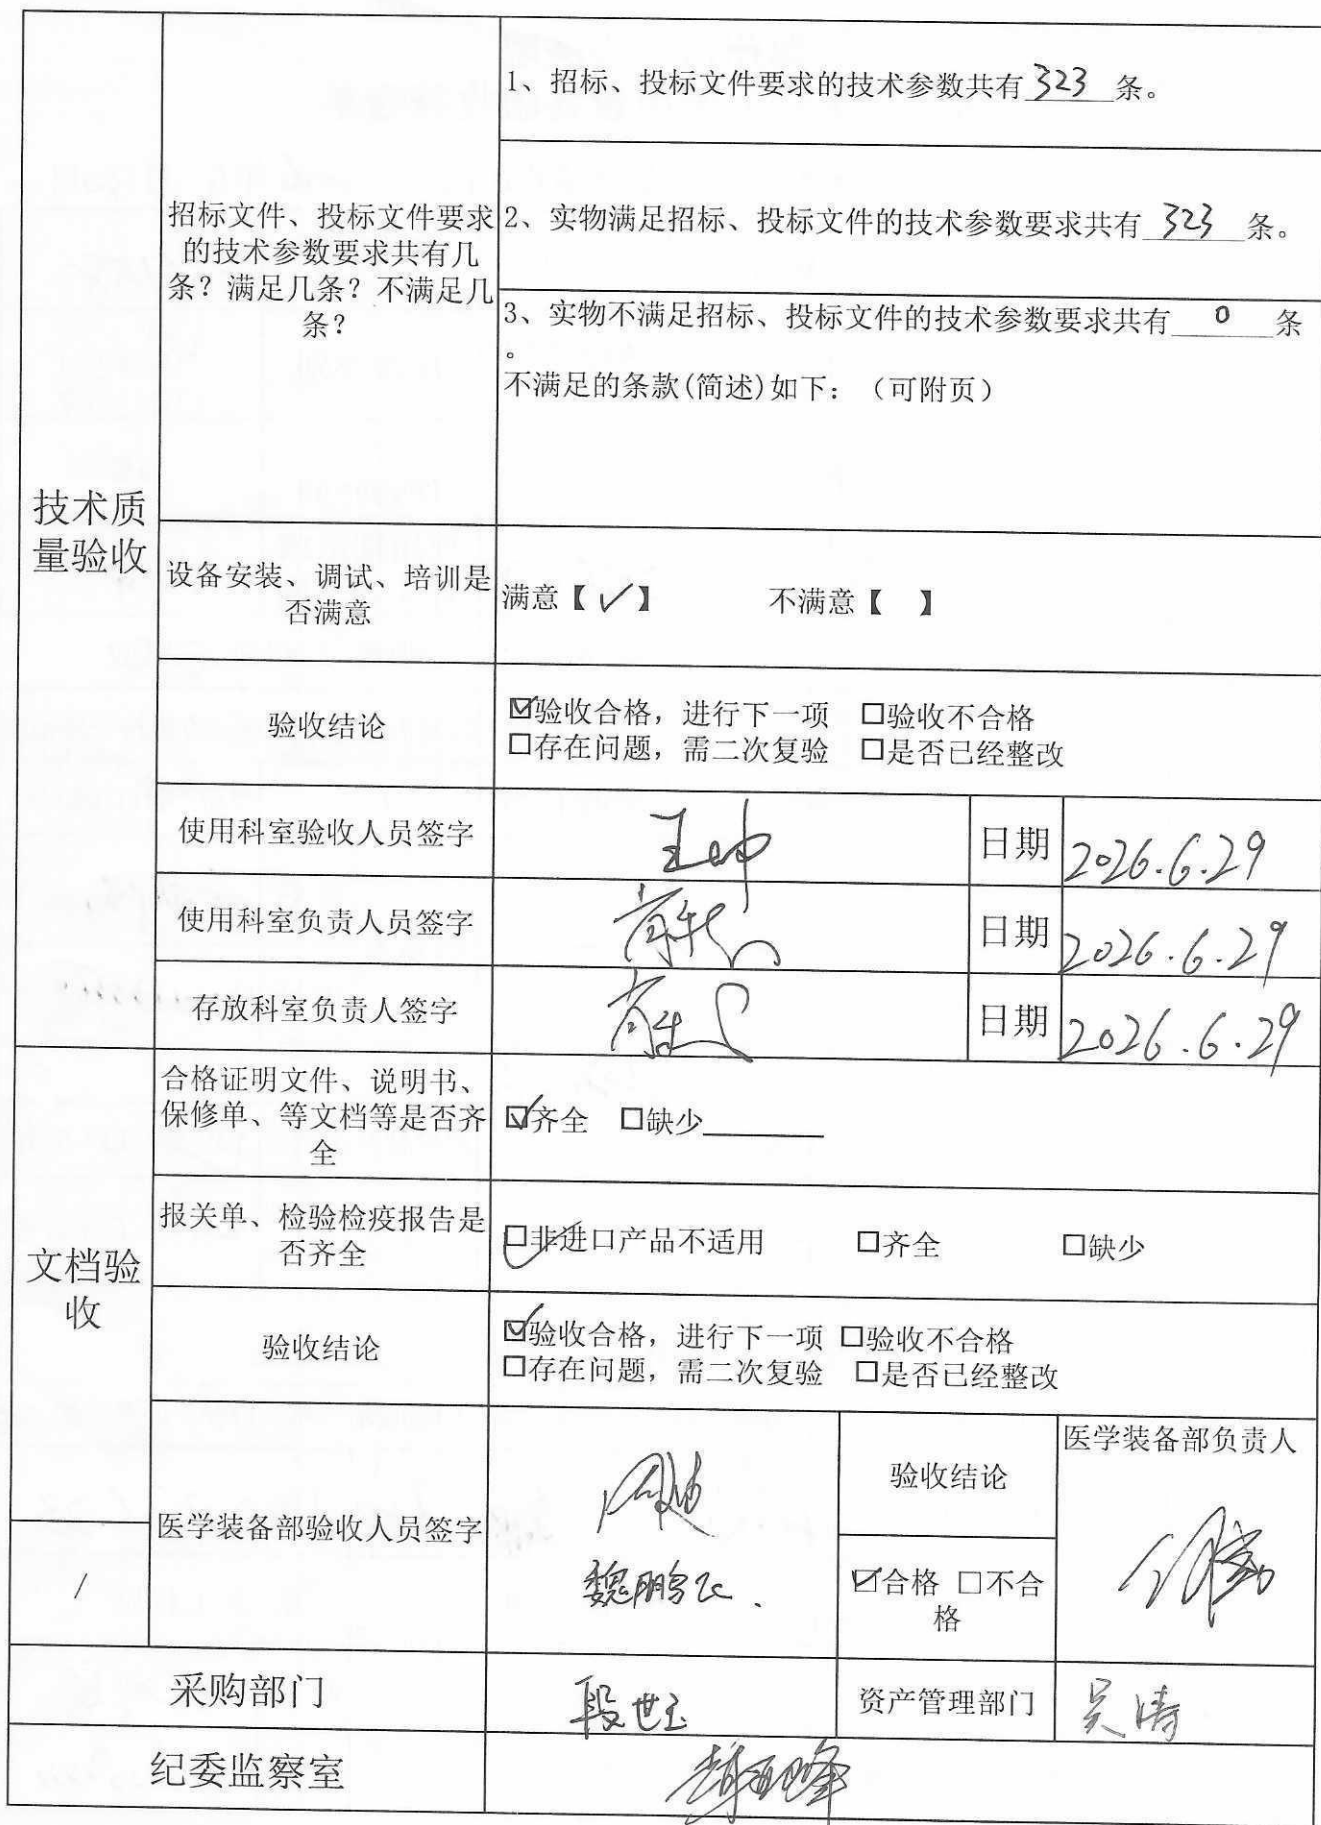 1、招标、投标文件要求的技术参数共有 323 条。
招标文件、投标文件要求
的技术参数要求共有几
条？满足几条？不满足几
条？
2、实物满足招标、投标文件的技术参数要求共有 323 条。
3、实物不满足招标、投标文件的技术参数要求共有 0 条
。
不满足的条款(简述)如下：（可附页）
技术质
量验收
设备安装、调试、培训是
否满意
满意【✓】 不满意【 】
验收结论
☑验收合格，进行下一项 □验收不合格
□存在问题，需二次复验 □是否已经整改
使用科室验收人员签字
日期 2026.6.29
使用科室负责人员签字
日期 2026.6.29
存放科室负责人签字
日期 2026.6.29
文档验
收
合格证明文件、说明书、
保修单、等文档等是否齐
全
☑齐全 □缺少______
报关单、检验检疫报告是
否齐全
☑非进口产品不适用 □齐全 □缺少
验收结论
☑验收合格，进行下一项 □验收不合格
□存在问题，需二次复验 □是否已经整改
/
医学装备部验收人员签字
魏鹏飞.
验收结论
☑合格 □不合
格
医学装备部负责人
采购部门
段世玉
资产管理部门
吴涛
纪委监察室